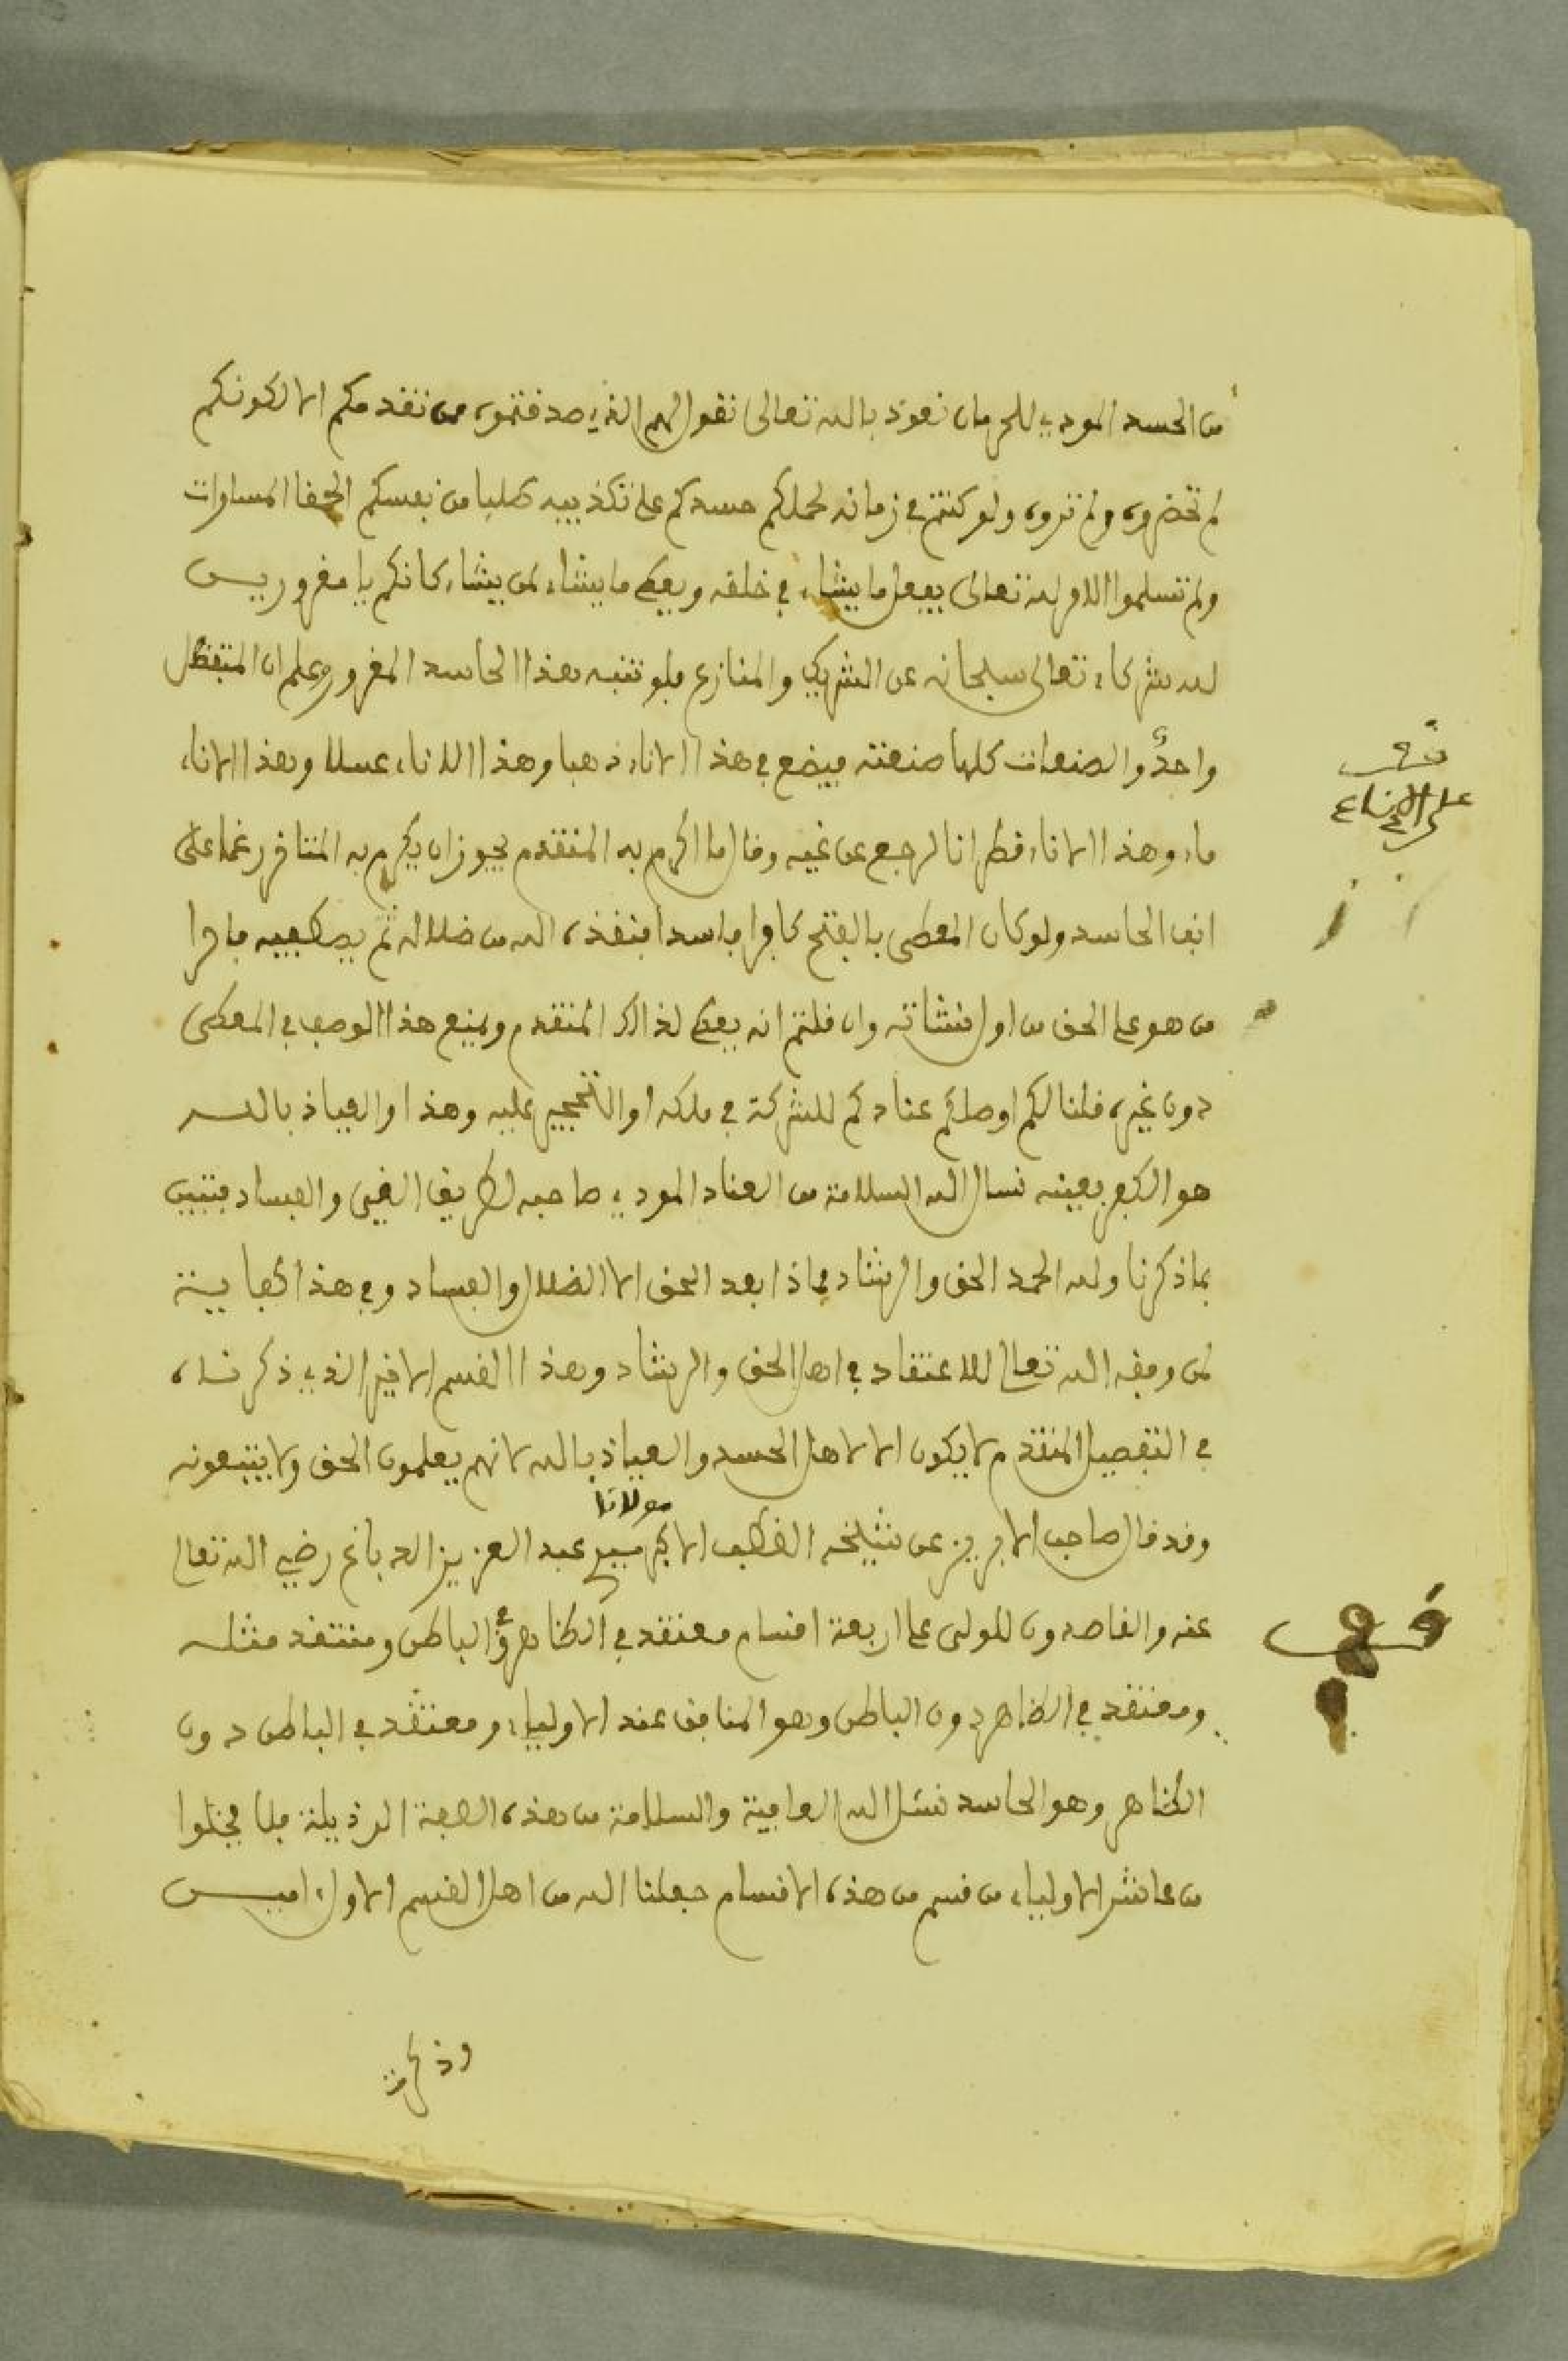 من الحسد المودي للحرمان نعوذ بالله تعالى نقول لهم الذي صدقتموه من تقدمكم الا لكونكم
لم تحضروه ولم تروه ولو كنتم في زمانه لحملكم حسدكم على تكذيبه طلبا من نفسكم المساوات
ولم تسلموا الامر لله تعالى يفعل ما يشاء في خلقه ويعطي ما يشاء لمن يشاء كانكم يا مغروريس
لله شركاء تعالى سبحانه عن الشريك والمنازع فلو تنبه هذا الحاسد المغرور وعلم ان المتفضل
واحد والصنعات كلها صنعته فيضع في هذا الاناء ذهبا وهذا الاناء عسلا وهذا الاناء
ماء وهذا الاناء قطرانا لرجع عن غيه وقال ما اكرم به المتقدم يجوز ان يكرم به المتاخر رغما على
انف الحاسد ولو كان المعطى بالفتح كافرا فاسدا فينقذه الله من ضلاله ثم يصطفيه فاحرا
من هو على الحق من اول نشاته وان قلتم انه يعطي لذالك المتقدم ويمنع هذا الوصف في المعطى
دون غيره قلنا لكم اوصلكم عنادكم للشركة في ملكه او التحجير عليه وهذا والعياذ بالله
هو الكفر بعينه نسال الله السلامة من العناد المودي صاحبه لطريق الغي والفساد فتبين
بما ذكرنا ولله الحمد الحق والرشاد فماذا بعد الحق الا الضلال والفساد وفي هذا كفاية
لمن وفقه الله تعالى للاعتقاد في اهل الحق والرشاد وهذا القسم الاخير الذي ذكرناه
في التفصيل المتقدم لا يكون الا لاهل الحسد والعياذ بالله لانهم يعلمون الحق ولا يتبعونه
وقد قال صاحب الابريز عن شيخه القطب الاكبر سيدي مولانا عبد العزيز الدباغ رضي الله تعالى
عنه والقاصدون للولي على اربعة اقسام معتقد في الظاهر والباطن ومنتقد مثله
ومعتقد في الظاهر دون الباطن وهو المنافق عند الاولياء ومعتقد في الباطن دون
الظاهر وهو الحاسد نسئل الله العافية والسلامة من هذه الصفة الرذيلة فلا يخلوا
من عاشر الاولياء من قسم من هذه الاقسام جعلنا الله من اهل القسم الاول اميس
وذكرت
قف
قف